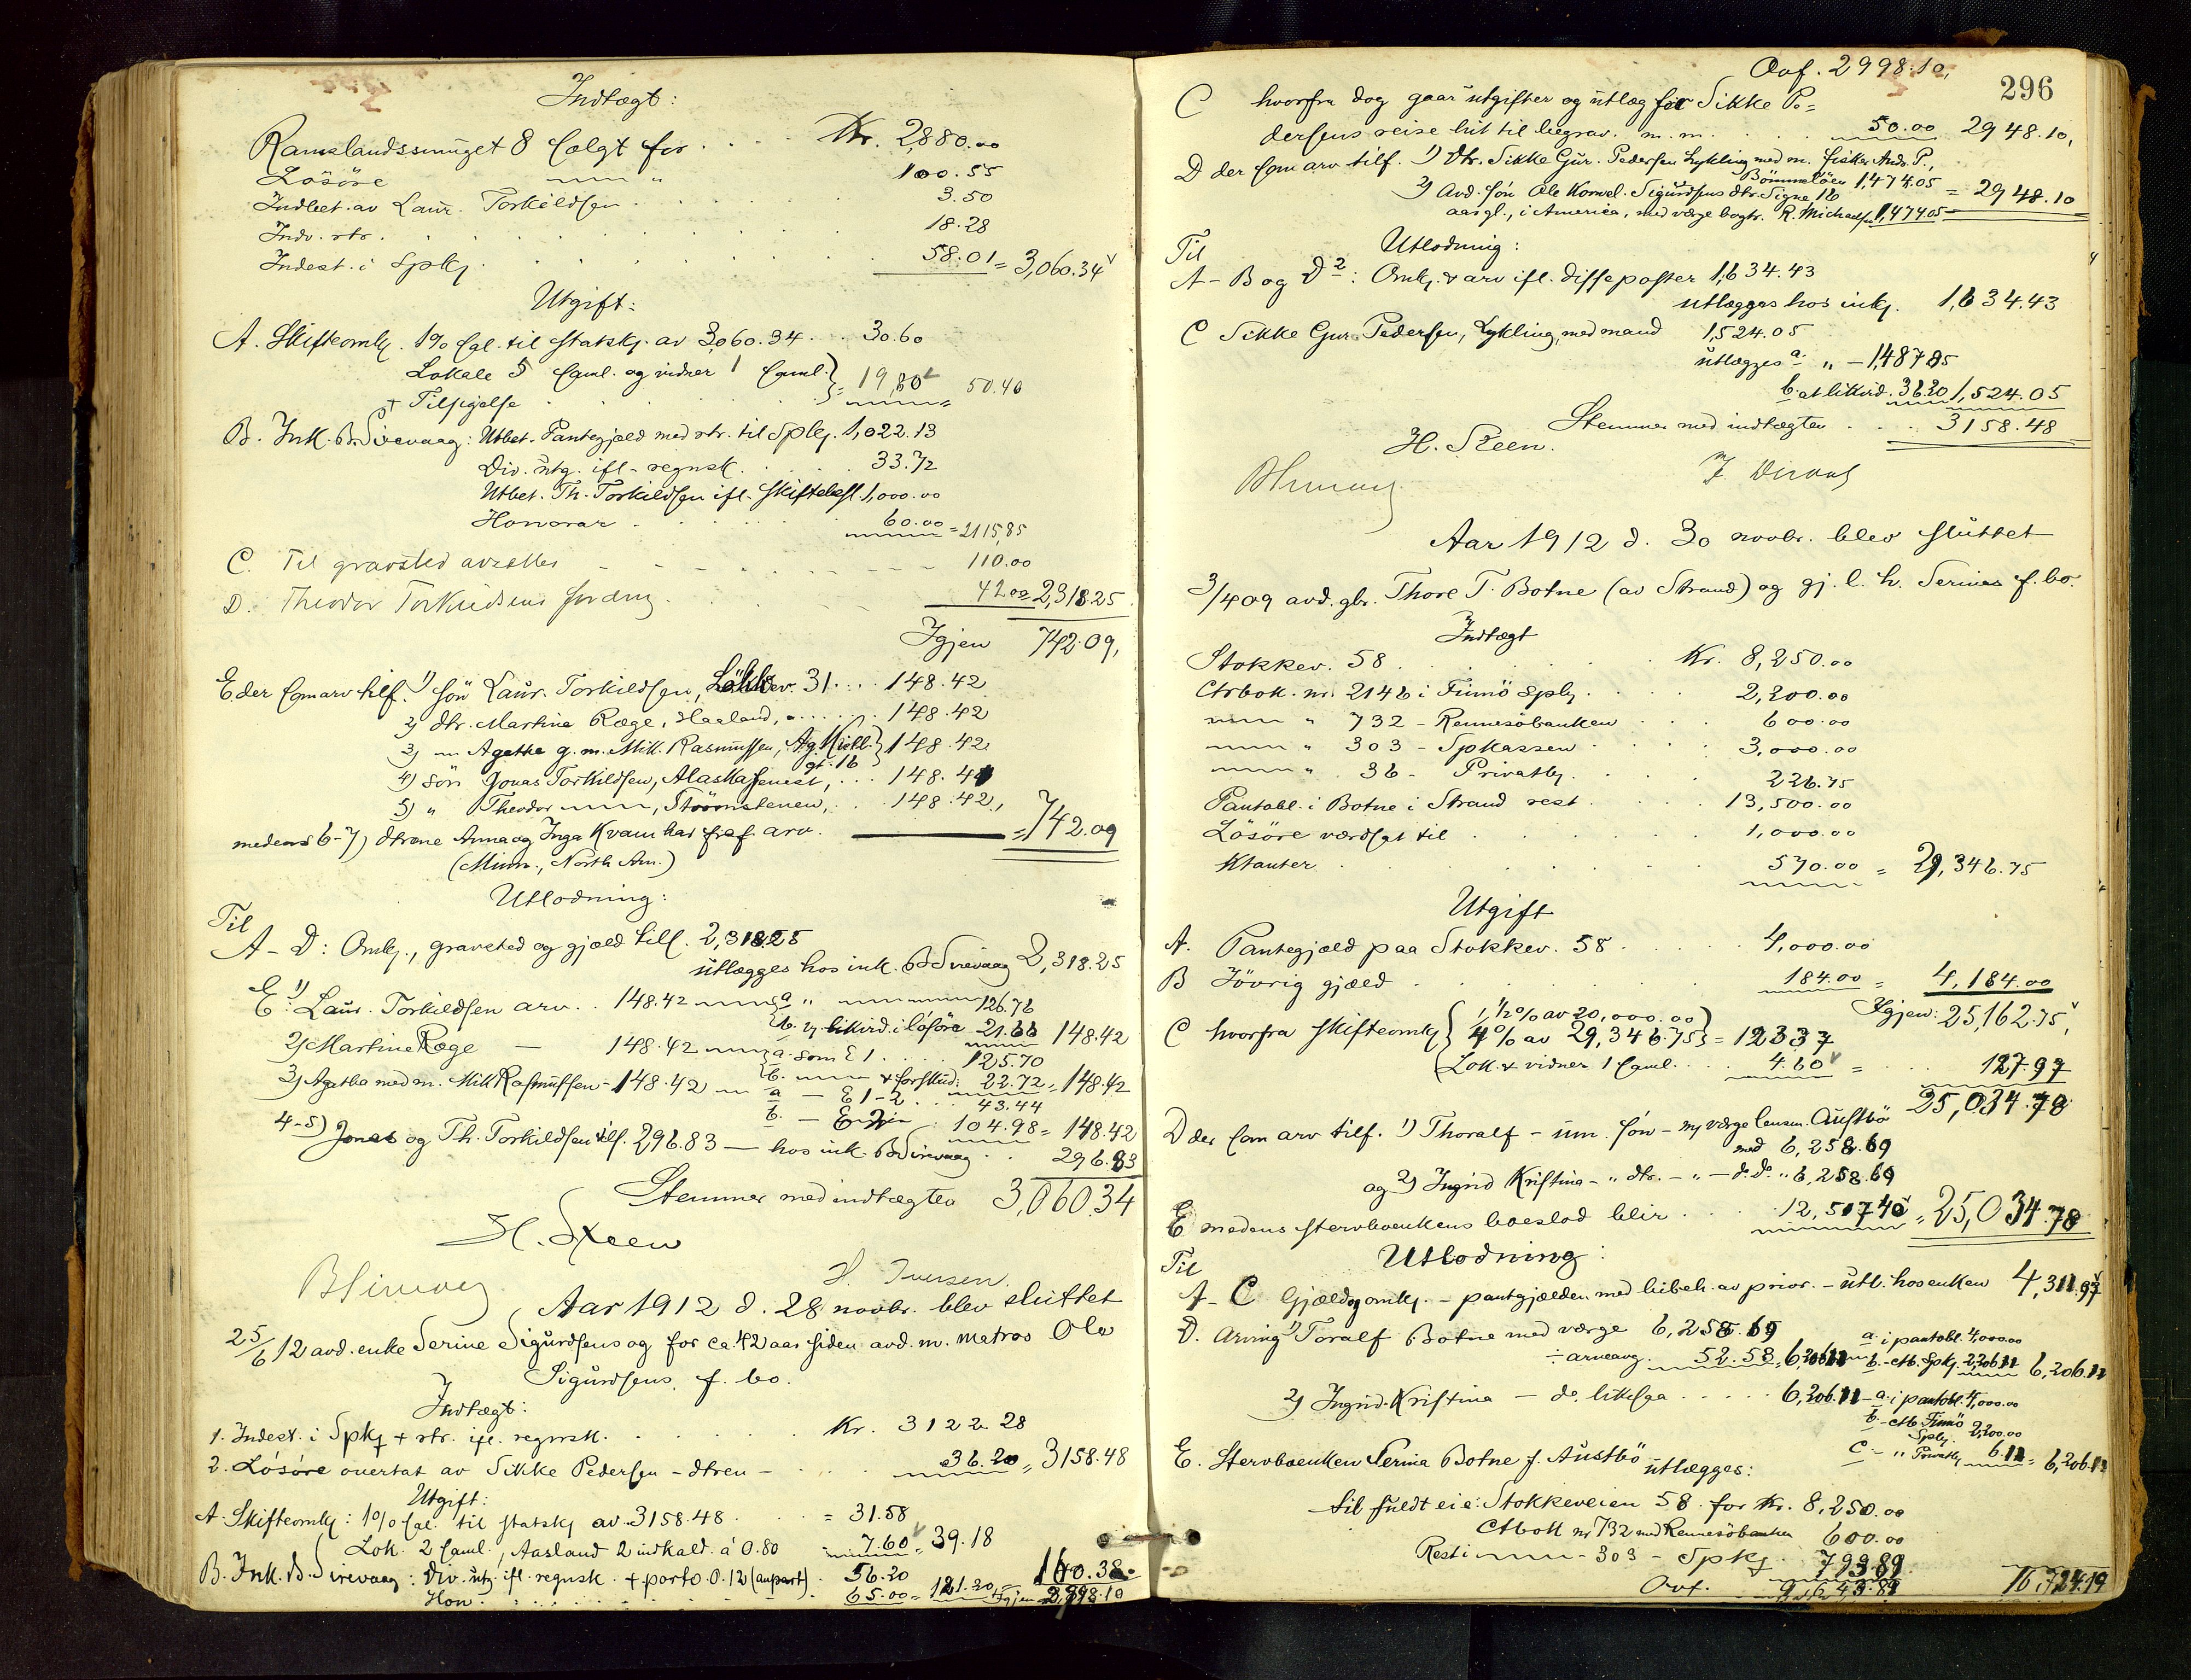 Indtægt:
Ramslandssmuget 8 solgt for . . . Kr. 2,880.00
Løsøre —"— " 100.55
Indbet. av Laur. Torkildsen . . . 3.50
Indv. rtr. . . . 18.28
Indest. i Spkj. . . . 58.01 = 3,060.34
Utgift:
A. Skifteomkj. 1% sal. til statskj. av 3,060.34 . . 30.60
Lokale 5 saml. og vidner 1 saml.
+ Tilsigelse . . . } = 19,80 50.40
B. Ink. B. Sirevaag: Utbet. Pantegjæld med rtr. til Spkj. 1,022.13
Div. utg. ifl. regnsk. . . . 33.72
Utbet. Th. Torkildsen ifl. skiftebesl. 1,000.00
Honorar . . . 60.00 = 2115,85
C. Til gravsted avsættes 110.00
D. Theodor Torkildsens fordring . . . 42.00 2,318.25
Igjen 742.09,
E. der som arv tilf. 1) søn Laur. Torkildsen, Løkkev. 31 . . . 148.42
2) dtr. Martine Ræge, Haaland, . . . 148.42
3) — Agathe g. m. Mik. Rasmussen, Ag. Kiell. gt. 16 } 148.42
4) søn Jonas Torkildsen, Alaska senest, . . . 148.41
5) " Theodor —"—, Strømstenen, . . 148.42,
medens 6-7) dtrene Anna og Inga Kvam har fraf. arv. = 742.09
(Minn., North Am.)
Utlodning:
Til
A - D: Omkj., gravsted og gjæld tils. 2,318.25
utlægges hos ink. B. Sirevaag 2,318.25
E. 1) Laur. Torkildsen arv . . 148.42 —"— a " —"— 126.76
b. ved likvid. i løsøre 21.66 148.42
2) Martine Ræge — 148.42 —"— a. som E 1 . . . 125.70
b. —"— + forskud: 22.72 = 148.42
3) Agatha med m. Mik Rasmussen - 148.42 — a — E 1-2 . . . 43.44
b. — E 2 . 104.98 = 148.42
4-5) Jonas og Th. Torkildsen tils. 296.83 — hos ink. B. Sirevaag . . 296.83
Stemmer med indtægten 3,060.34
H. Steen
B Sirevaag H. Iversen.
Aar 1912 d. 28 novbr. blev sluttet
25/6 12 avd. enke Serine Sigurdsens og for ca. 42 aar siden avd. m. matros Ole
Sigurdsens f. bo.
Indtægt:
1. Indest. i Spkj + rtr. ifl. regnsk. . . . Kr. 3122.28
2. Løsøre overtat av Sikke Pedersen - dtren - . . . 36.20 = 3158.48
Utgift:
A. Skifteomkj: 1% sal. til statskj av 3158.48 . . = 31.58
Lok. 2 saml., Aasland 2 indkald. á 0.80 - 7.60 = 39.18
B. Ink. B. Sirevaag: Div. utg. ifl. regnsk. + porto 0.12 (aupart) . 56.20
Hon. . . . 65.00 = 121.20 = 160.38
Igjen 2,998.10
Ovf. 2998.10,
296
C hvorfra dog gaar utgifter og utlæg for Sikke Pe=
dersens reise hit til begrav. m.m. . . . 50.00 2948.10,
D der som arv tilf. 1) dtr. Sikke Gur. Pedersen Lykling med m. fisker Andr. P.,
Bømmeløen 1,474.05
2) Avd. søn Ole Kornel. Sigurdsens dtr. Signe 16
aar gl., i America, med værge bogtr. R. Michaelsen 1,474.05 = 2948.10
Utlodning:
Til
A - B og D 2: Omkj. & arv ifl. disse poster 1,634.43
utlægges hos inkj. 1,634.43
C Sikke Gur. Pedersen, Lykling, med mand 1,524.05
utlægges a: " - 1,487.85
b. at likvid. 36.20 1,524.05
Stemmer med indtægten . . . 3158.48
H. Steen.
B Sirevaag
Aar 1912 d. 30 novbr. blev sluttet
3/4 09 avd. gbr. Thore T. Botne (av Strand) og gj. l. h. Serines f. bo.
Indtægt
Stokkev. 58 . . . Kr. 8,250.00
Ctrbok. nr. 2146 i Finnø Spkj . . . 2,200.00
—"— " 732 - Rennesøbanken . . . 600.00
—"— " 303 - Spkassen . . . 3,000.00
—"— " 36 - Privatbk. . . . 226.75
Pantobl. i Botne i Strand rest . . . 13,500.00
Løsøre værdsat til . . . 1,000.00
Ktanter . . . 570.00 = 29,346.75
Utgift
A. Pantegjæld paa Stokkev. 58 . . . 4,000.00
B Iøvrig gjæld . . . 184.00 = 4,184.00
Igjen: 25,162.75,
C hvorfra skifteomkj { 1/2% av 20,000.00
4% av 29,346.75 } = 123.37
Lok. & vidner 1 saml. . . . 4.60 = . . . 127.97
25,034.78
D der som arv tilf. 1) Thoralf - um. søn - m/ værge lensm. Austbø
med 6,258.69
og 2) Ingrid Kristina - " dtr. - " - do. do. " 6,258.69
E medens stervboenkens boeslod blir . . . 12,517.40 = 25,034.78
Utlodning:
Til
A - C Gjæld og omkj. - pantgjælden med bibeh. av prior. - utl. hos enken 4,311.97
D. Arving 1) Toralf Botne med værge 6,258.69 a. i pantobl. 4,000.00
÷ arveavg. 52.58 = 6,206.11 — b. - ctb. Spkj. 2,206.11 6,206.11
2) Ingrid Kristina - do. likesaa . . . 6,206.11 - a. i pantobl. 4,000.00
b. - ctb Finnø Spkj. 2,200.00
c - " Privatbk. 6.11 = 6,206.11
E. Stervboenken Serina Botne f. Austbø utlægges:
til fuldt eie: Stokkeveien 58. for Kr. 8,250.00
Ctbok nr 732 med Rennesøbanken 600.00
Rest i —"— - 303 - Spkj. . 793.89
Ovf. 9,643.89 16,724.19